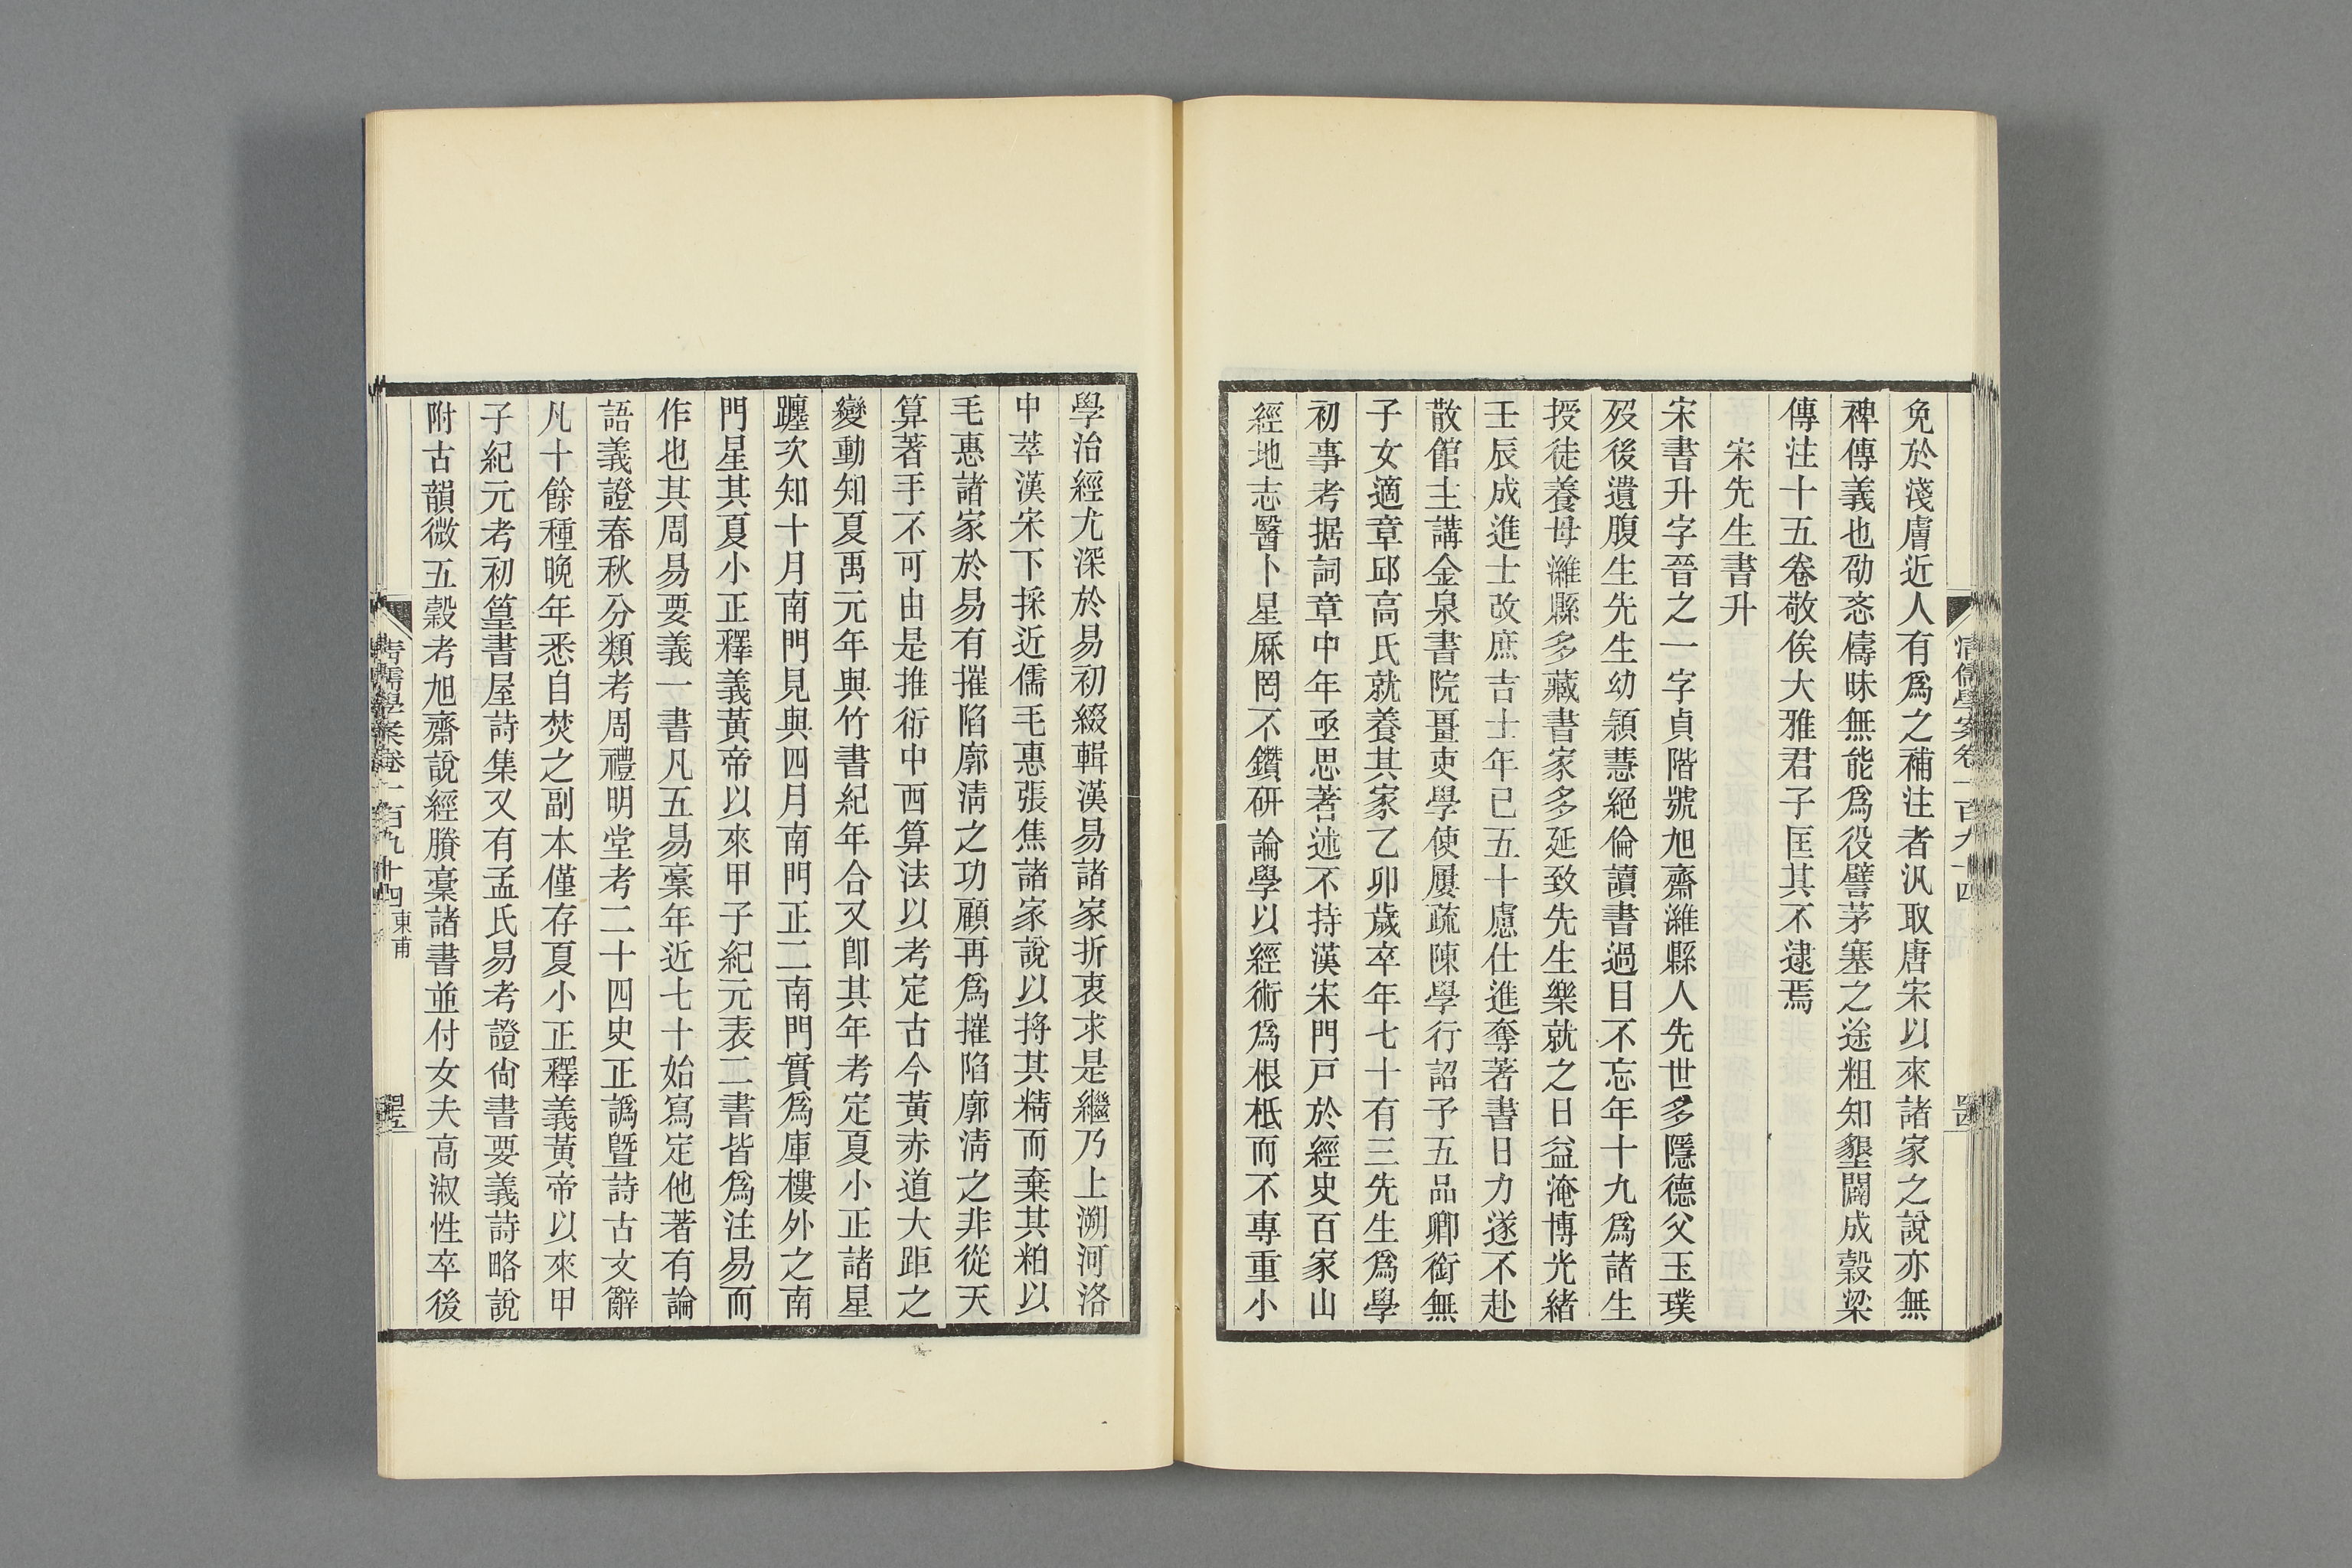 清儒學案卷一百九十四
免於淺膚近人有爲之補注者汎取唐宋以來諸家之說亦無
裨傳義也劭忞儔昧無能爲役譬茅塞之途粗知墾闢成穀粱
傳注十五卷敬俟大雅君子匡其不逮焉
宋先生書升
宋書升字晉之一字貞階號旭齋濰縣人先世多隱德父玉璞
歿後遺腹生先生幼穎慧絕倫讀書過目不忘年十九爲諸生
授徒養母濰縣多藏書家多延致先生樂就之日益淹博光緒
壬辰成進士改庶吉士年已五十慮仕進奪著書日力遂不赴
散館主講金泉書院畺吏學使屢疏陳學行詔予五品卿銜無
子女適章邱高氏就養其家乙卯歲卒年七十有三先生爲學
初事考据詞章中年亟思著述不持漢宋門戸於經史百家山
經地志醫卜星厤罔不鑽研論學以經術爲根柢而不專重小
學治經尤深於易初綴輯漢易諸家折衷求是繼乃上溯河洛
中萃漢宋下採近儒毛惠張焦諸家說以捋其精而棄其粕以
毛惠諸家於易有摧陷廓清之功顧再爲摧陷廓清之非從天
算著手不可由是推衍中西算法以考定古今黃赤道大距之
變動知夏禹元年與竹書紀年合又卽其年考定夏小正諸星
躔次知十月南門見與四月南門正二南門實爲庫樓外之南
門星其夏小正釋義黃帝以來甲子紀元表二書皆爲注易而
作也其周易要義一書凡五易藁年近七十始寫定他著有論
語義證春秋分類考周禮明堂考二十四史正譌曁詩古文辭
凡十餘種晚年悉自焚之副本僅存夏小正釋義黃帝以來甲
子紀元考初篁書屋詩集又有孟氏易考證尙書要義詩略說
附古韻微五穀考旭齋說經賸藁諸書並付女夫高淑性卒後
清儒學案卷一百九十四 東甫